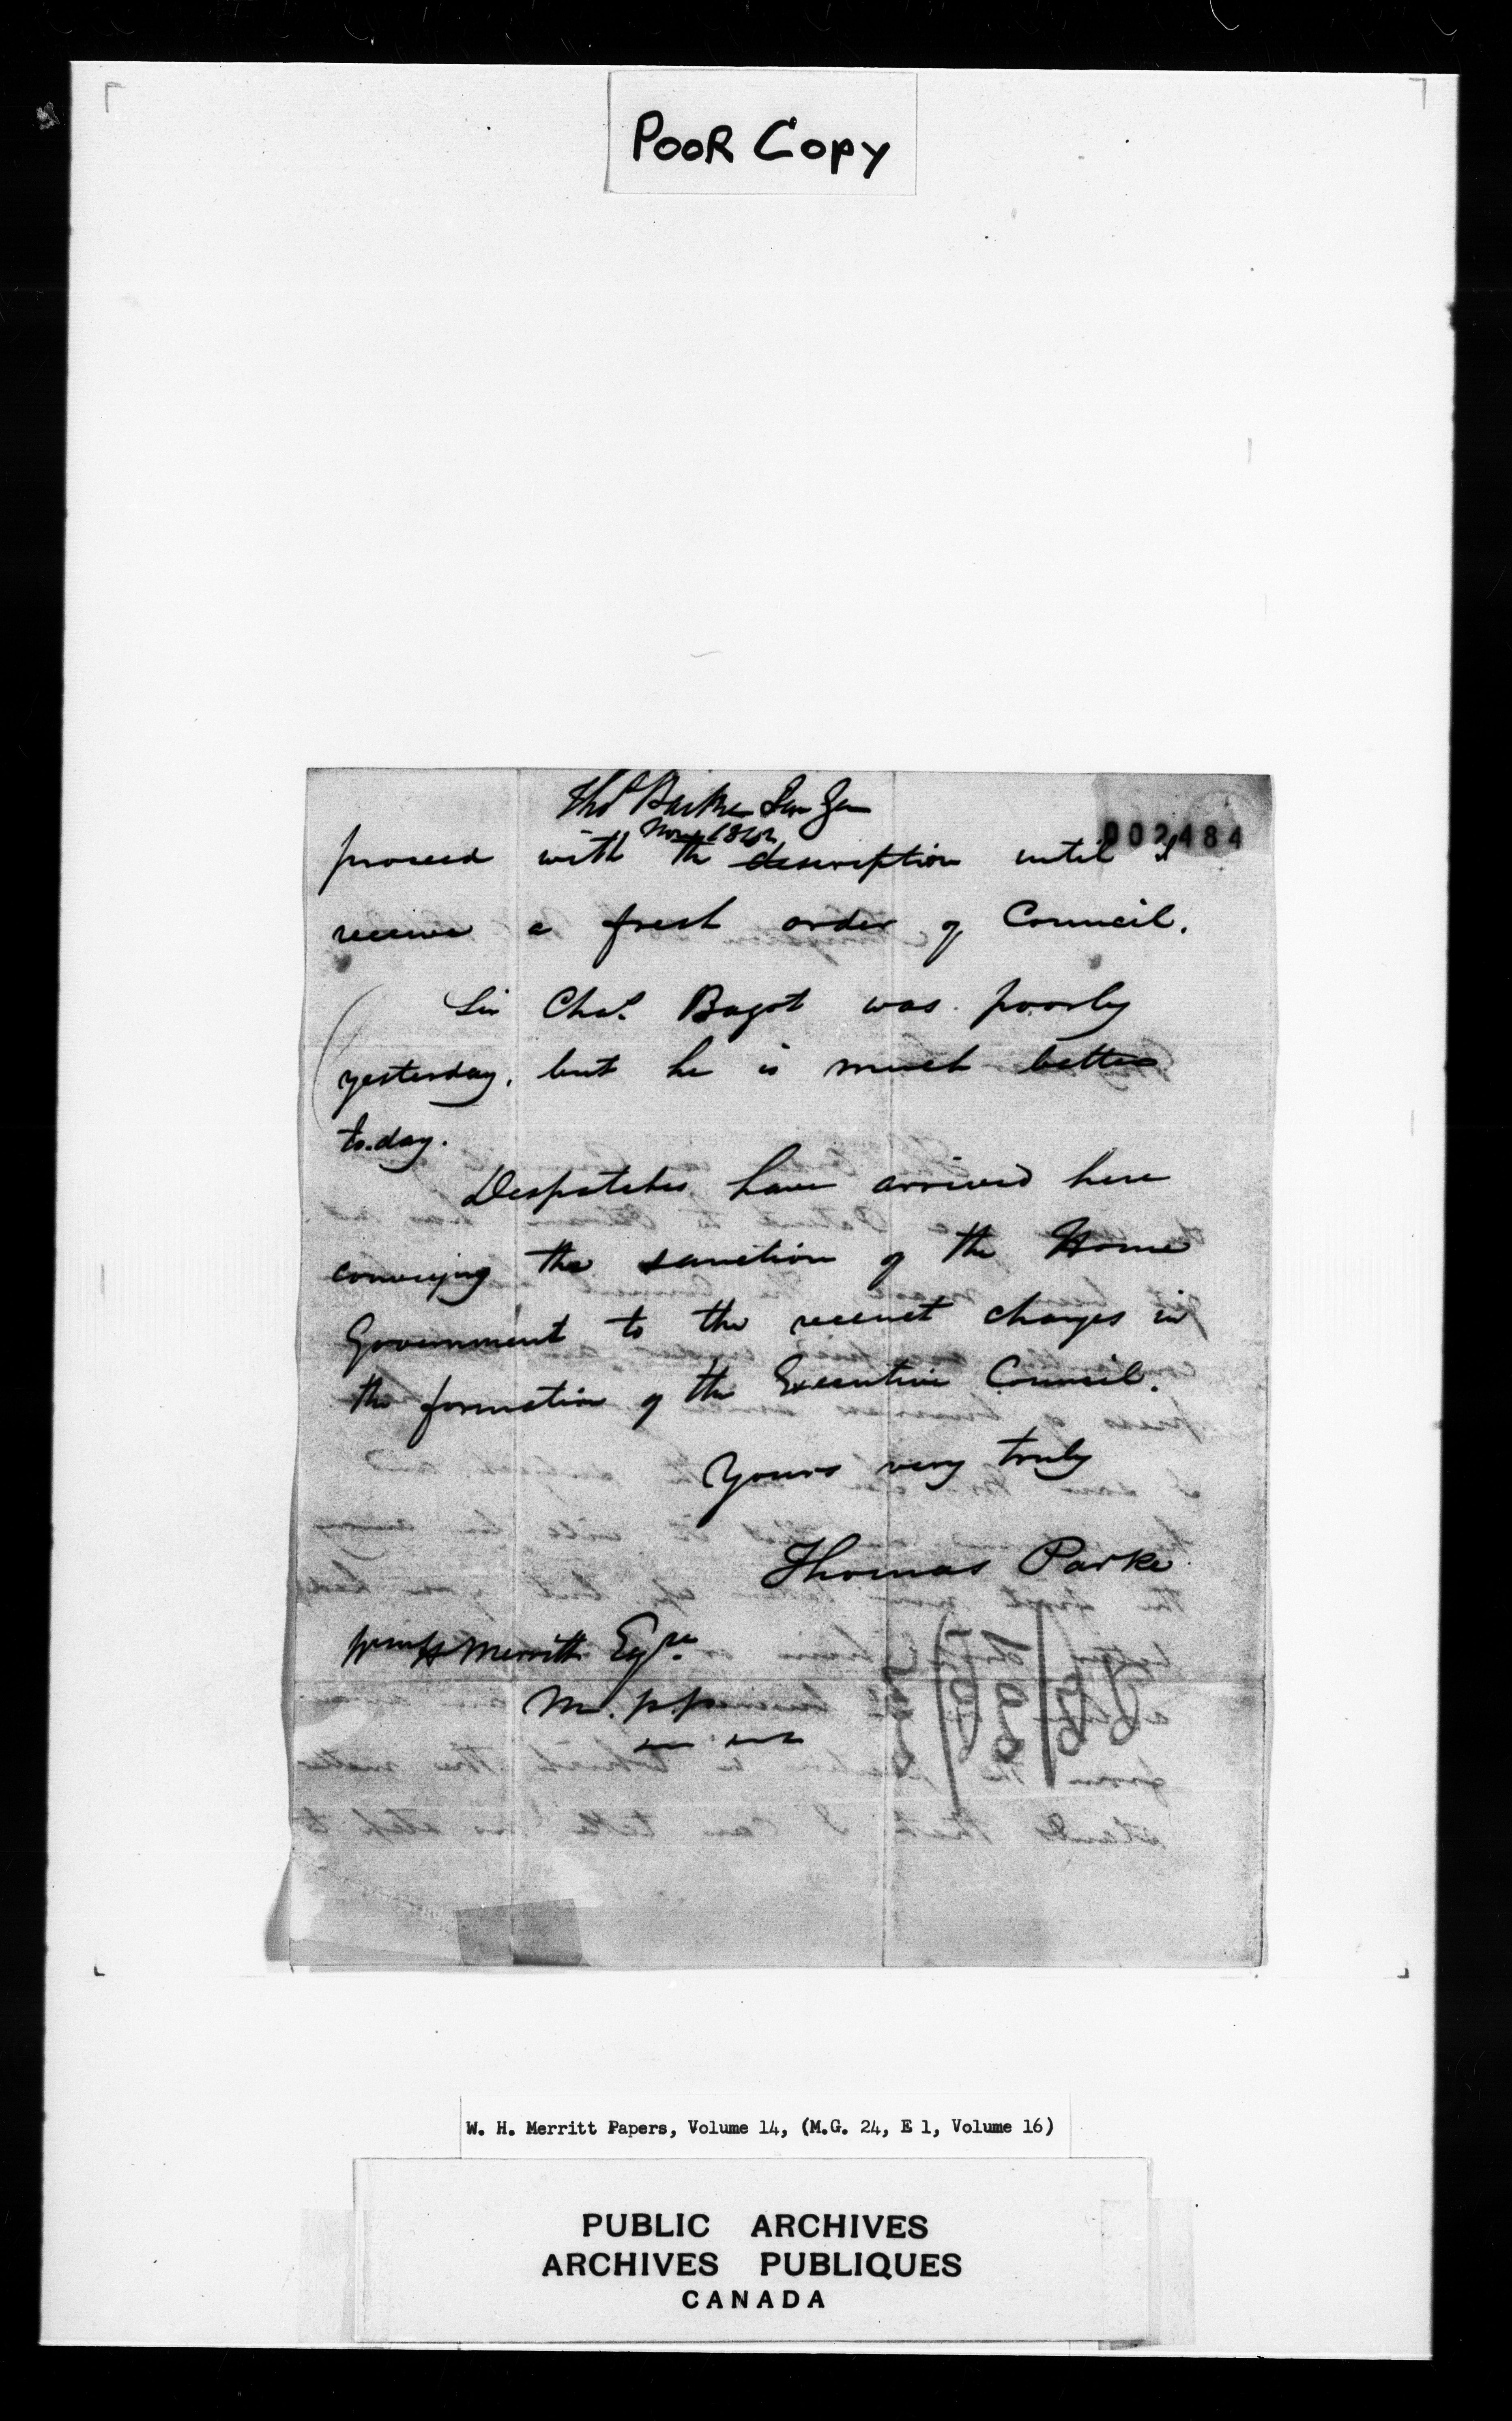 POOR COPY
Thos Parke Sur Gen
Nov 1842
002484
proceed with the description until I
receive a fresh order of Council.
Sir Chas. Bagot was poorly
yesterday, but he is much better
to.day.
Despatches have arrived here
conveying the sanction of the Home
Government to the recent changes in
the formation of the Executive Council.
Yours very truly
Thomas Parke
Wm H Merritt Esqre
M.P.P.
W. H. Merritt Papers, Volume 14, (M.G. 24, E 1, Volume 16)
PUBLIC ARCHIVES
ARCHIVES PUBLIQUES
CANADA